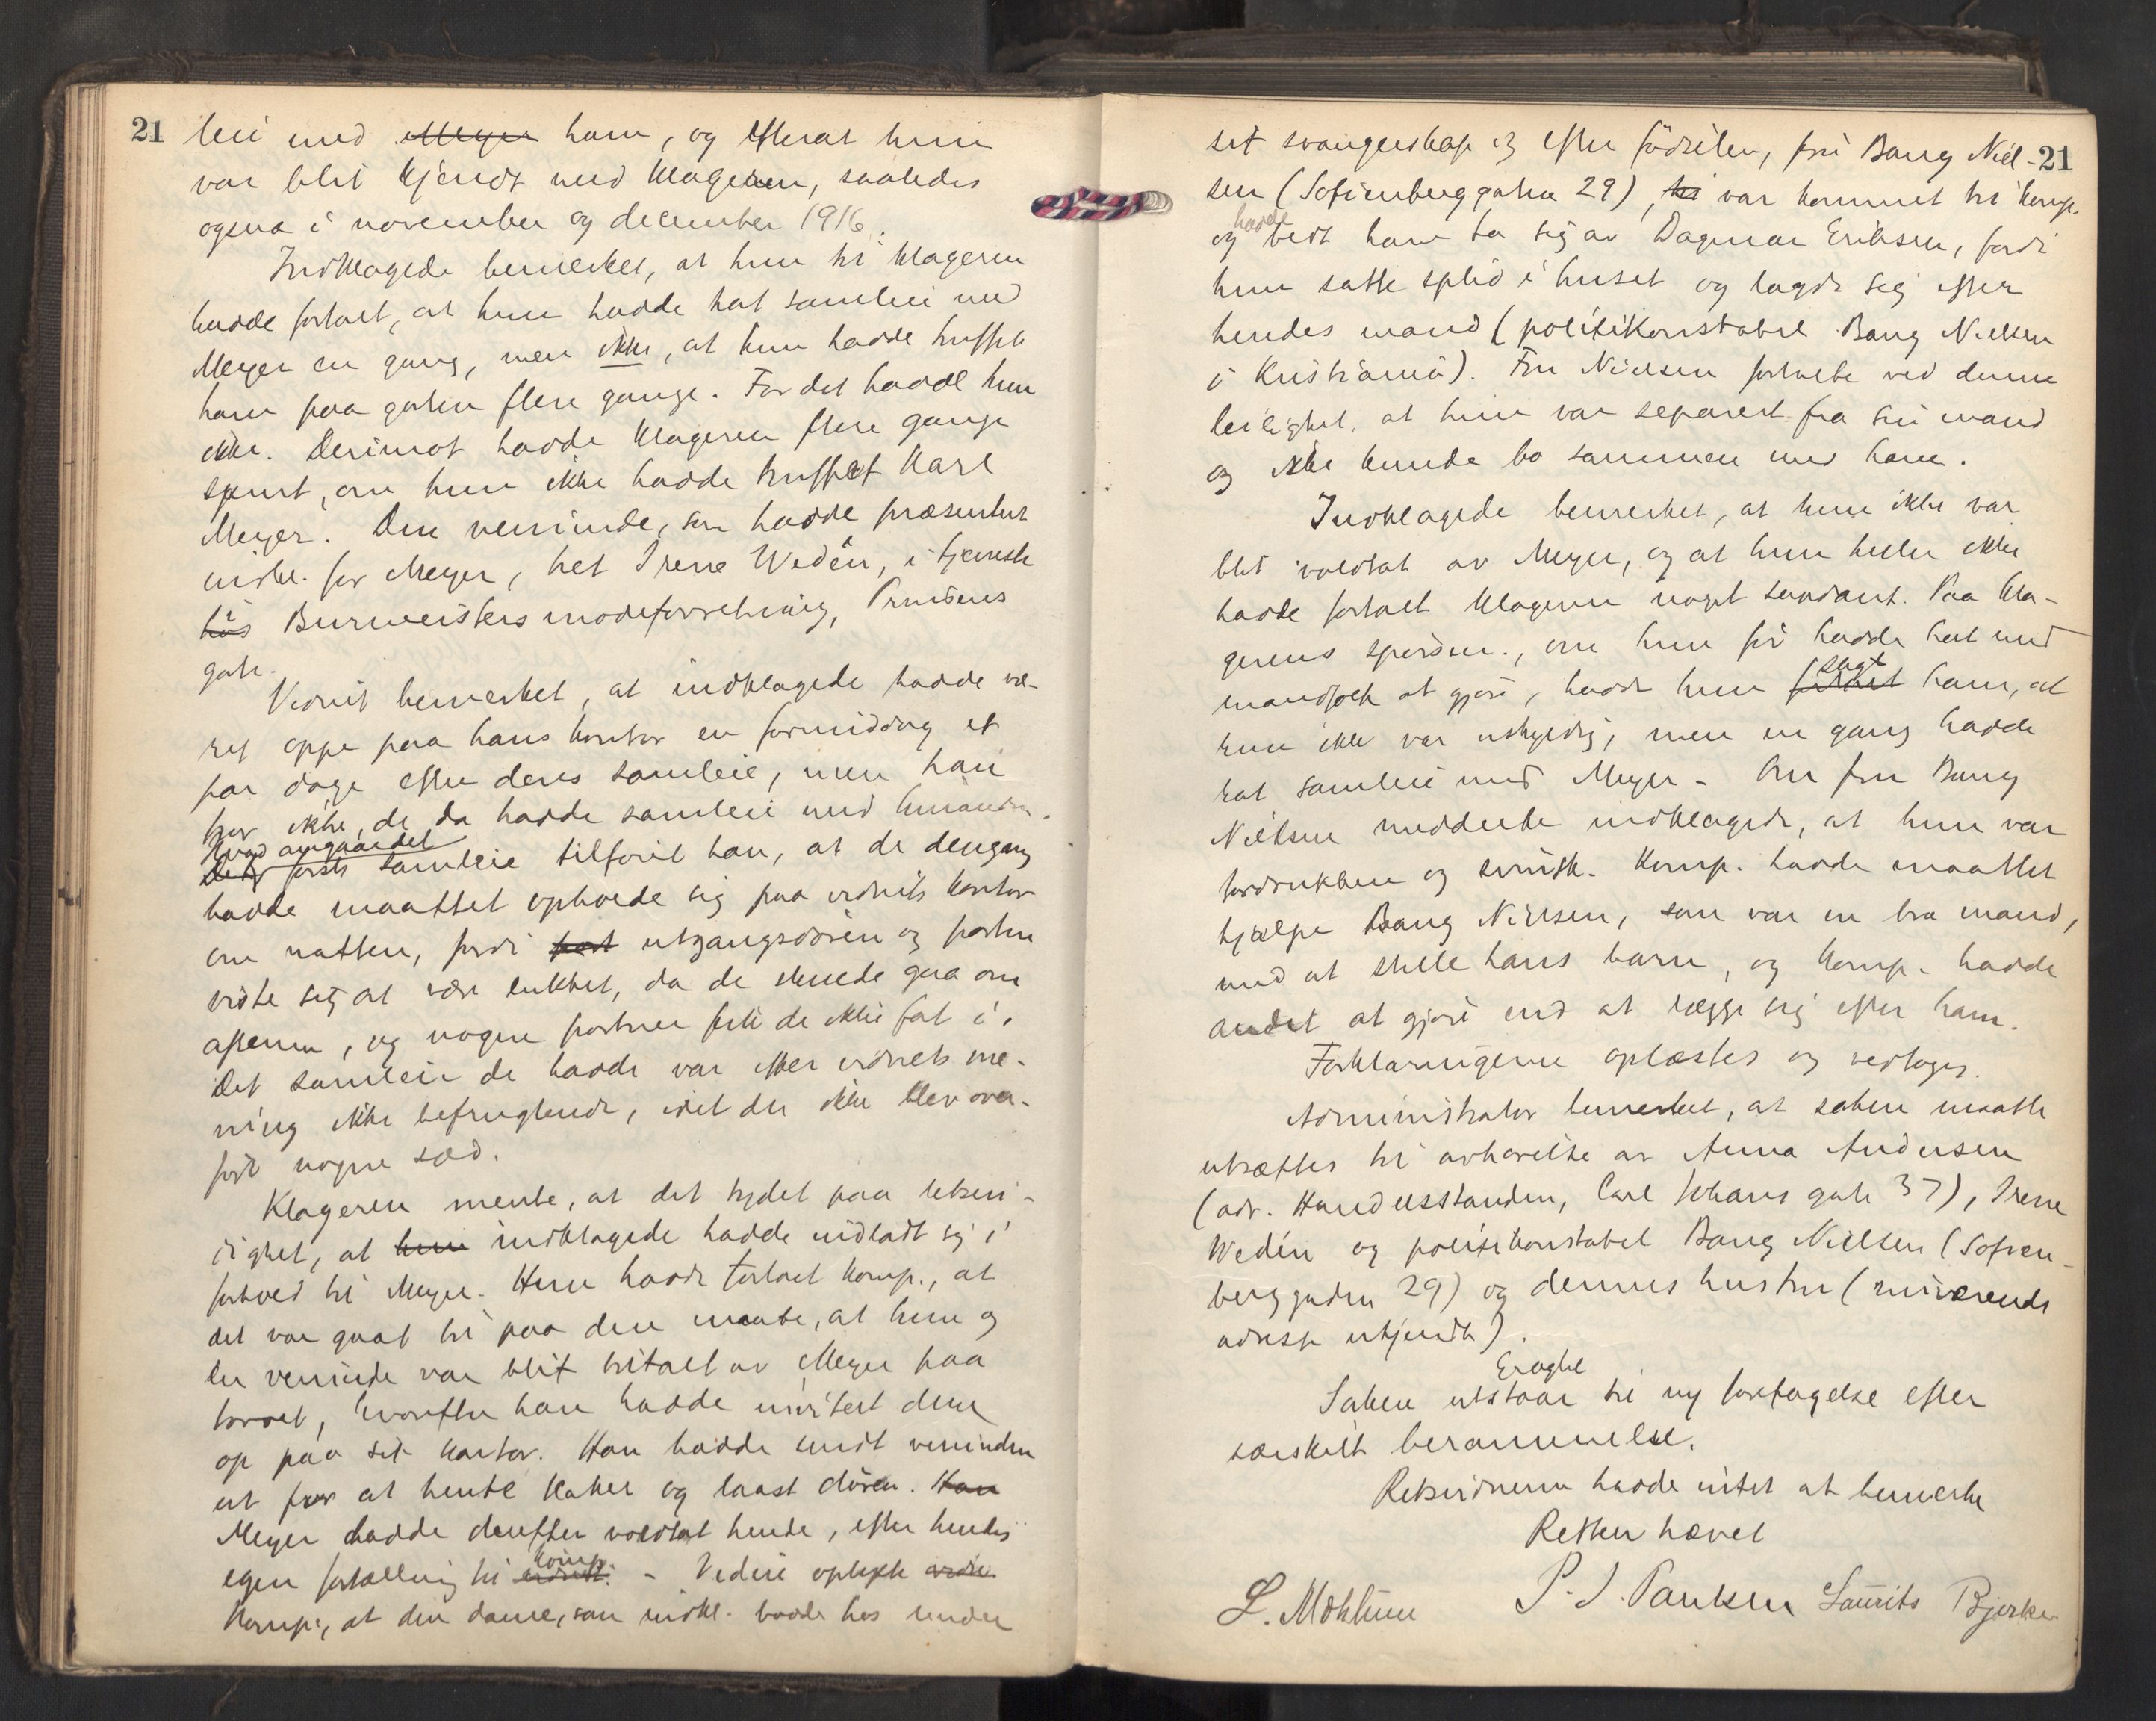 21
leie med Meyer ham, og efterat hun
var blit kjendt med klageren, saaledes
ogsaa i november og december 1916.
Indklagede bemerket, at hun til klageren
hadde fortalt, at hun hadde hat samleie med
Meyer en gang, men ikke, at hun hadde truffet
ham paa gaten flere gange. For det hadde hun
ikke. Derimot hadde klageren flere gange
spurt, om hun ikke hadde truffet Karl
Meyer. Den veninde, som hadde præsentert
indkl. for Meyer, het Irene Wedén, i tjeneste
hos Burmeisters modeforretning, Prinsens
gate.
Vidnet bemerket, at indklagede hadde væ-
ret oppe paa hans kontor en formiddag et
par dage efter deres samleie, men han
tror ikke, de da hadde samleie med hinanden.
Hvad angaar det
Det første samleie tilføiet han, at de dengang
hadde maattet opholde sig paa vidnets kontor
om natten, fordi port utgangsdøren og porten
viste sig at være lukket, da de skulde gaa om
aftenen, og nogen portner fik de ikke fat i.
Det samleie de hadde var efter vidnets me-
ning ikke befrugtende, idet der ikke blev over-
ført nogen sæd.
Klageren mente, at det tydet paa letsin-
dighet, at hun indklagede hadde indladt sig i
forhold til Meyer. Hun hadde fortalt komp., at
det var gaat til paa den maate, at hun og
en veninde var blit tiltalt av Meyer paa
torvet, hvorefter han hadde invitert dem
op paa sit kontor. Han hadde sendt veninden
ut for at hente kaker og laast døren. Han
Meyer hadde derefter voldtat hende, efter hendes
komp.
egen fortælling til vidnet. - Videre oplyste vidn.
komp., at den dame, som indkl. bodde hos under
21
sit svangerskap og efter fødselen, fru Bang Niel-
sen (Sofienberggaten 29), til var kommet til komp.
hadde
og bedt ham ta sig av Dagmar Eriksen, fordi
hun satte splid i huset og lagde sig efter
hendes mand (politikonstabel Bang Nielsen
i Kristiania). Fru Nielsen fortalte ved denne
leilighet, at hun var separert fra sin mand
og ikke kunde bo sammen med ham.
Indklagede bemerket, at hun ikke var
blit voldtat av Meyer, og at hun heller ikke
hadde fortalt klageren noget saadant. Paa kla-
gerens spørsm., om hun før hadde hat med
sagt
mandfolk at gjøre, hadde hun fortalt ham, at
hun ikke var uskyldig, men en gang hadde
hat samleie med Meyer. - Om fru Bang
Nielsen meddelte indklagede, at hun var
fordrukken og svinsk. Komp. hadde maattet
hjælpe Bang Nielsen, som var en bra mand,
med at stelle hans barn, og komp. hadde
andet at gjøre end at lægge sig efter ham.
Forklaringerne oplæstes og vedtoges.
Administrator bemerket, at saken maatte
utsættes til avhørelse av Anna Andersen
(adr. Handelsstanden, Carl Johans gate 37), Irene
Wedén og politikonstabel Bang Nielsen (Sofien-
berggaden 29) og dennes hustru (nuværende
adresse ukjendt).
Eragtet
Saken utstaar til ny foretagelse efter
særskilt berammelse.
Retsvidnerne hadde intet at bemerke
Retten hævet
P. I. Paulsen Laurits Bjerke